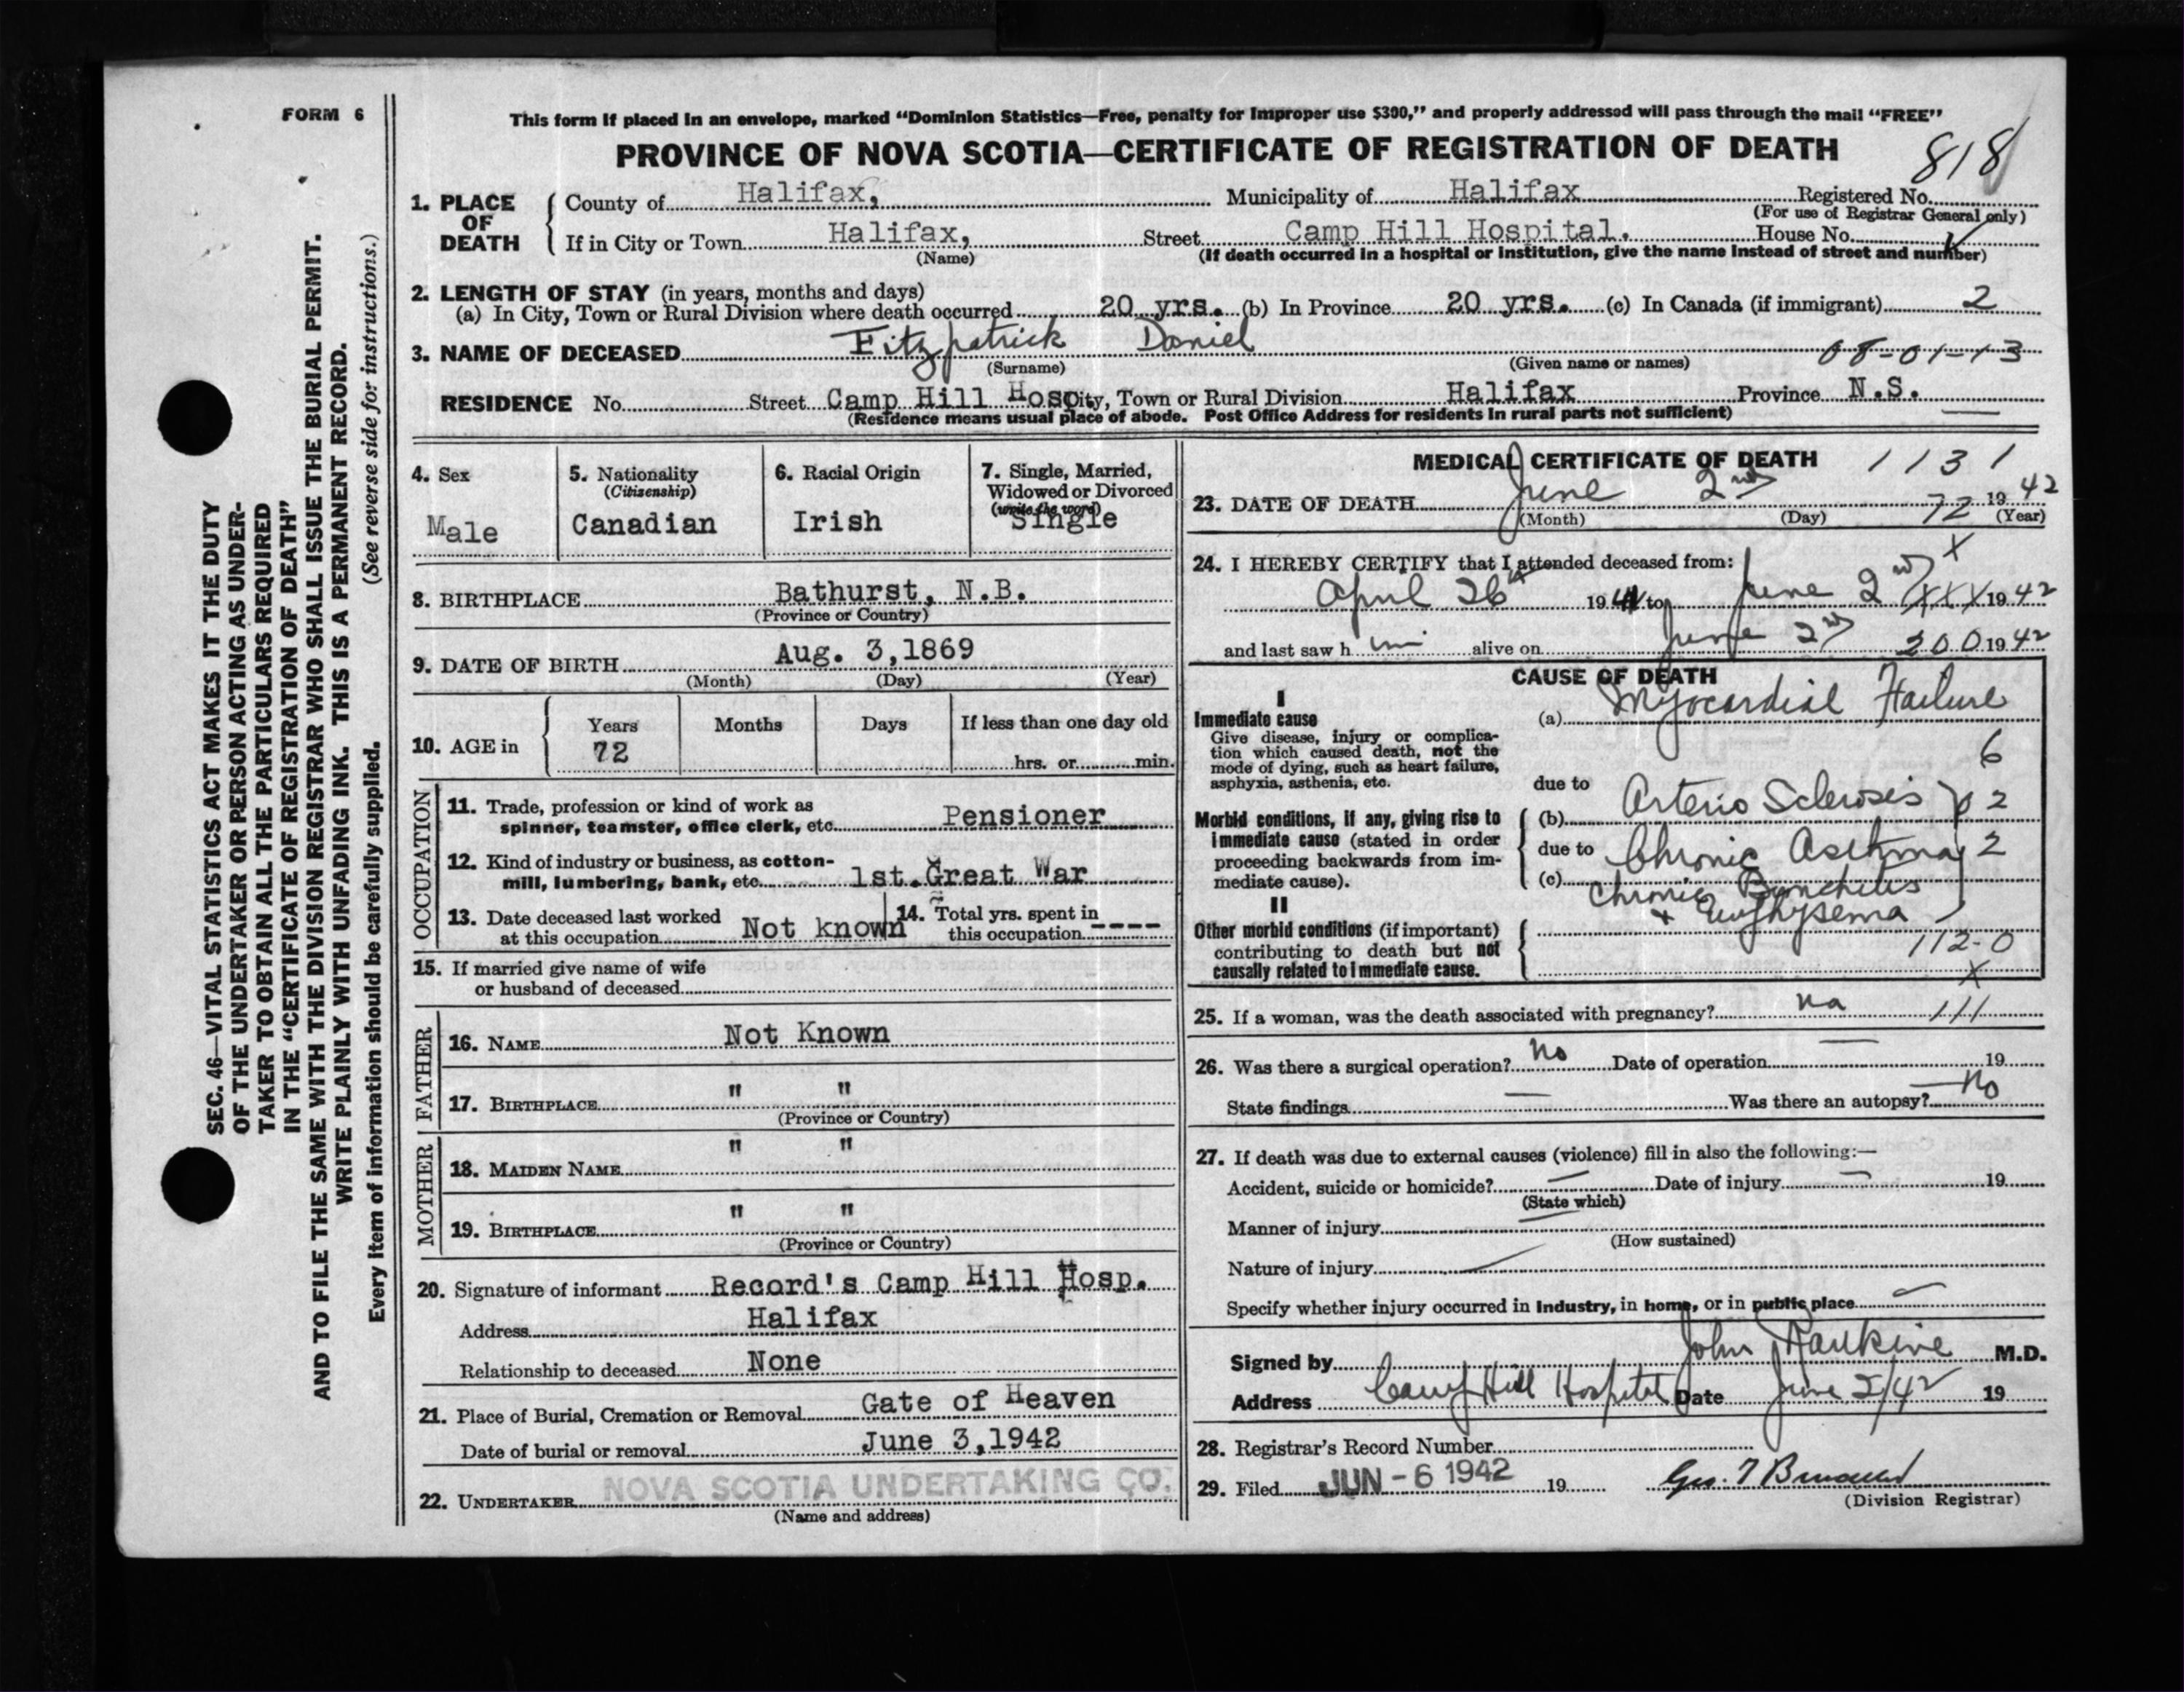 FORM 6
This form if placed in an envelope, marked "Dominion Statistics—Free, penalty for improper use $300," and properly addressed will pass through the mail "FREE"
PROVINCE OF NOVA SCOTIA—CERTIFICATE OF REGISTRATION OF DEATH
818
1. PLACE OF DEATH { County of Halifax, Municipality of Halifax Registered No.
(For use of Registrar General only)
If in City or Town Halifax, Street Camp Hill Hospital. House No.
(Name) (If death occurred in a hospital or institution, give the name instead of street and number)
2. LENGTH OF STAY (in years, months and days)
(a) In City, Town or Rural Division where death occurred 20 yrs. (b) In Province 20 yrs. (c) In Canada (if immigrant) 2
3. NAME OF DECEASED Fitzpatrick Daniel 08-01-13
(Surname) (Given name or names)
RESIDENCE No. Street Camp Hill Hosp City, Town or Rural Division Halifax Province N.S.
(Residence means usual place of abode. Post Office Address for residents in rural parts not sufficient)
4. Sex
Male
5. Nationality
(Citizenship)
Canadian
6. Racial Origin
Irish
7. Single, Married,
Widowed or Divorced
(write the word)
Single
8. BIRTHPLACE Bathurst, N.B.
(Province or Country)
9. DATE OF BIRTH Aug. 3,1869
(Month) (Day) (Year)
10. AGE in { Years Months Days If less than one day old
72 hrs. or min.
OCCUPATION
11. Trade, profession or kind of work as
spinner, teamster, office clerk, etc. Pensioner
12. Kind of industry or business, as cotton-
mill, lumbering, bank, etc. 1st.Great War
13. Date deceased last worked
at this occupation Not known
14. Total yrs. spent in
this occupation ----
15. If married give name of wife
or husband of deceased
FATHER
16. NAME Not Known
17. BIRTHPLACE " "
(Province or Country)
MOTHER
18. MAIDEN NAME " "
19. BIRTHPLACE " "
(Province or Country)
20. Signature of informant Record's Camp Hill Hosp.
Address Halifax
Relationship to deceased None
21. Place of Burial, Cremation or Removal Gate of Heaven
Date of burial or removal June 3,1942
22. UNDERTAKER NOVA SCOTIA UNDERTAKING CO.
(Name and address)
MEDICAL CERTIFICATE OF DEATH 1131
23. DATE OF DEATH June 2nd 72 1942
(Month) (Day) (Year)
24. I HEREBY CERTIFY that I attended deceased from: X
April 26th 1941 to June 2nd XXX 1942
and last saw him alive on June 2nd 200 1942
CAUSE OF DEATH
I
Immediate cause (a) Myocardial Failure
Give disease, injury or complica-
tion which caused death, not the
mode of dying, such as heart failure,
asphyxia, asthenia, etc.
6
due to
Morbid conditions, if any, giving rise to
immediate cause (stated in order
proceeding backwards from im-
mediate cause).
(b) Arterio Sclerosis 02
due to Chronic Asthma 2
(c) Chronic Bronchitis
+ Emphysema
II
Other morbid conditions (if important)
contributing to death but not
causally related to immediate cause.
112-0
X
25. If a woman, was the death associated with pregnancy? na 111
26. Was there a surgical operation? No Date of operation — 19
State findings — Was there an autopsy? No
27. If death was due to external causes (violence) fill in also the following:—
Accident, suicide or homicide? — Date of injury — 19
(State which)
Manner of injury
(How sustained)
Nature of injury
Specify whether injury occurred in industry, in home, or in public place
Signed by John Rankine M.D.
Address Camp Hill Hospital Date June 2/42 19
28. Registrar's Record Number
29. Filed JUN -6 1942 19 Geo. T
(Division Registrar)
SEC. 46—VITAL STATISTICS ACT MAKES IT THE DUTY
OF THE UNDERTAKER OR PERSON ACTING AS UNDER-
TAKER TO OBTAIN ALL THE PARTICULARS REQUIRED
IN THE "CERTIFICATE OF REGISTRATION OF DEATH"
AND TO FILE THE SAME WITH THE DIVISION REGISTRAR WHO SHALL ISSUE THE BURIAL PERMIT.
WRITE PLAINLY WITH UNFADING INK. THIS IS A PERMANENT RECORD.
Every item of information should be carefully supplied. (See reverse side for instructions.)